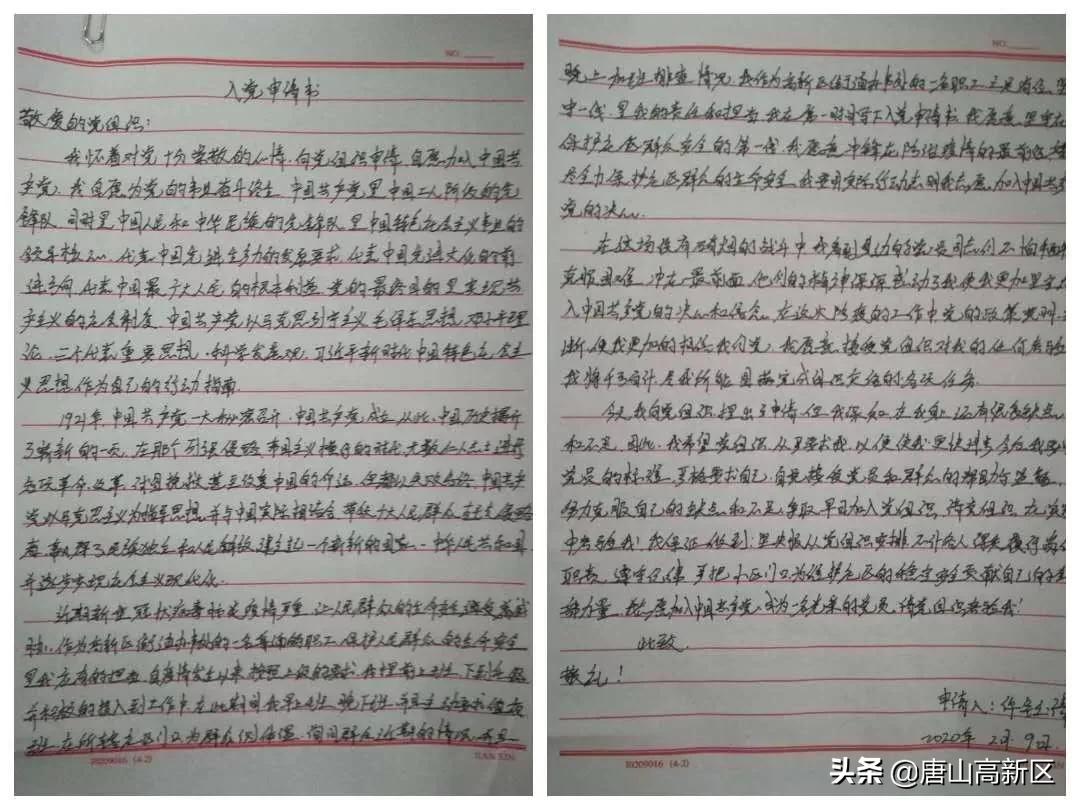 NO.
入党申请书
敬爱的党组织：
我怀着对党十分崇敬的心情，向党组织申请，自愿加入中国共
产党，我自愿为党的事业奋斗终生，中国共产党是中国工人阶级的先
锋队，同时是中国人民和中华民族的先锋队，是中国特色社会主义事业的
领导核心，代表中国先进生产力的发展要求，代表中国先进文化的前
进方向，代表中国最广大人民的根本利益，党的最终目的是实现共
产主义的社会制度，中国共产党以马克思列宁主义，毛泽东思想，邓小平理
论，三个代表重要思想，科学发展观，习近平新时代中国特色社会主
义思想，作为自己的行动指南。
1921年，中国共产党一大秘密召开，中国共产党成立，从此，中国历史揭开
了崭新的一页，在那个列强侵略，帝国主义横行的时代，无数仁人志士进行
各项革命，改革，试图挽救甚至改变中国的命运，但都以失败告终，中国共产
党以马克思主义为指导思想，并与中国实际相结合，带领广大人民群众
取得了民族独立和人民解放，建立起一个崭新的国家，中华人民共和国
并逐步实现社会主义现代化。
近期新型冠状病毒肺炎疫情严重，让人民群众的生命安全遭受着威
胁，作为高新区街道办事处的一名普通的职工，保护人民群众的生命安全
是我应有的担当，自疫情发生以来，按照上级的要求，我提前上班，下到社区
并积极的投入到工作中，在此期间我早上班，晚下班，并且主动要求值夜
班，在所辖社区门口为群众测体温，询问群众近期的情况，并且
R0209016 (4-2)
NO.
晚上加班排查情况，我作为高新区街道办事处的一名职工，立足岗位，坚
守一线，是我的责任和担当，我在第一时间写下入党申请书，我愿意坚守在
保护社区群众安全的第一线，我愿意冲锋在防治疫情的最前沿，
尽全力保护社区群众的生命安全，我要用实际行动去加入中国共产
党的决心。
在这场没有硝烟的战斗中，我看到身边的党员同志们不怕
克服困难，冲在最前面，他们的精神深深感动了我，使我更加坚定
入中国共产党的决心和信念，在这次防疫的工作中，党的政策
断，使我更加的相信我们党，我愿意接受党组织对我的任何考验
我将不计，尽我所能，圆满完成组织交给的各项任务。
今天，我向党组织提出了申请，但我深知，在我身上还有很多缺点
和不足，因此，我希望党组织从严要求我，以便使我更快进步，今后，我要以
党员的标准，严格要求自己，自觉接受党员和群众的帮助与监督，
努力克服自己的缺点和不足，争取早日加入党组织，请党组织在
中考验我！我保证做到：坚决服从党组织安排，不计个人得失，
职责，连守把小区门口，为维护社区的稳定安全贡献自己的
力量，我志愿加入中国共产党，成为一名光荣的党员，请党组织考验我！
此致
敬礼！
申请人：
2020年 2月 9日
R0209016 (4-2)
头条 @唐山高新区